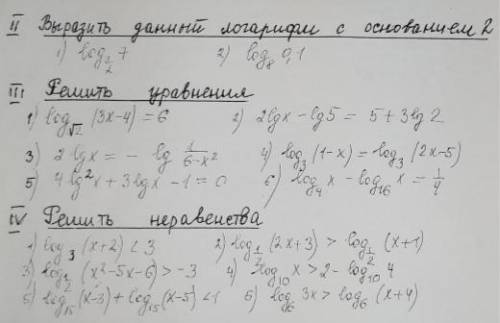 II Выразить данный логарифм с основанием 2
1) log_{1/2} 7 2) log_8 0,1
III Решить уравнения
1) log_{√2} (3x-4) = 6 2) 2lgx - lg5 = 5 + 3lg2
3) 2lgx = - lg 1/(6-x²) 4) log_3 (1-x) = log_3 (2x-5)
5) 4lg²x + 3lgx - 1 = 0 6) log_4 x - log_16 x = 1/4
IV Решить неравенства
1) log_3 (x+2) < 3 2) log_{1/2} (2x+3) > log_{1/2} (x+1)
3) log_{1/2} (x²-5x-6) > -3 4) log_10 x > 2 - log_10 4
5) log_15 (x-3) + log_15 (x-5) < 1 6) log_6 3x > log_6 (x+4)